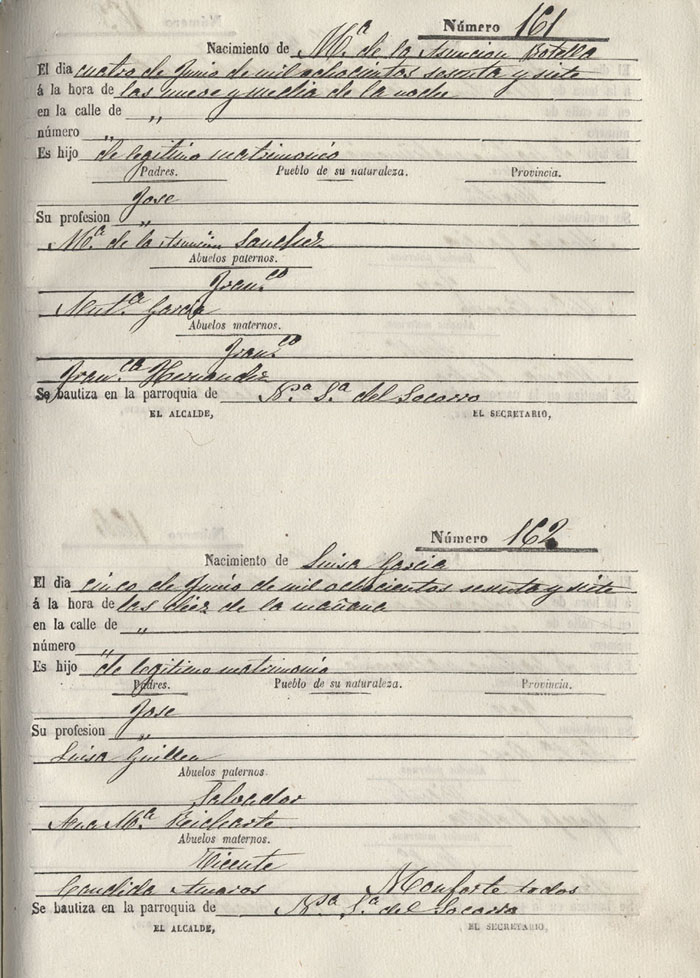 Número 161
Nacimiento de Mª de la Asuncion Botella
El dia cuatro de Junio de mil ochocientos sesenta y siete
á la hora de las nueve y media de la noche
en la calle de "
número "
Es hijo de legitimo matrimonio
Padres. Pueblo de su naturaleza. Provincia.
Jose
Su profesion "
Mª de la Asunción Sanchez
Abuelos paternos.
Franco
Antª Garcia
Abuelos maternos.
Franco
Franca Hernandez
Se bautiza en la parroquia de Nª Sª del Socorro
EL ALCALDE, EL SECRETARIO,
Número 162
Nacimiento de Luisa Garcia
El dia cinco de Junio de mil ochocientos sesenta y siete
á la hora de las diez de la mañana
en la calle de "
número "
Es hijo de legitimo matrimonio
Padres. Pueblo de su naturaleza. Provincia.
Jose
Su profesion "
Luisa Guillen
Abuelos paternos.
Salvador
Ana Mª
Abuelos maternos.
Vicente
Candida Amoros Monforte todos
Se bautiza en la parroquia de Nsª Sª del Socorro
EL ALCALDE, EL SECRETARIO,